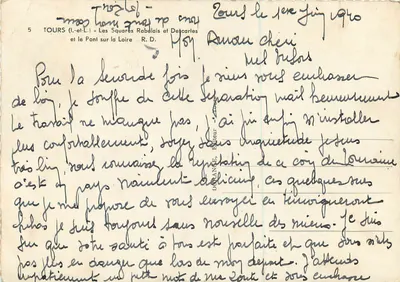 Tours le 1er Juin 1940
5 TOURS (I.-et-L.) - Les Squares Rabelais et Descartes
et le Pont sur la Loire R. D.
Mon Amour chéri
Pour la seconde fois je viens vous embrasser
de loin, je souffre de cette séparation mais heureusement
le travail ne manque pas, j'ai pu enfin m'installer
plus confortablement, soyez sans inquiétude je suis
très bien, vous connaissez la réputation de ce coin de Touraine
c'est un pays vraiment délicieux, ces quelques vues
que je me propose de vous envoyer en témoigneront
je suis toujours sans nouvelle des miens. Je suis
sûr que votre santé à tous est parfaite et que vous n'êtes
pas plus en danger que lors de mon départ. J'attends
impatiemment un petit mot de ma et vous embrasse
vous de tout mon